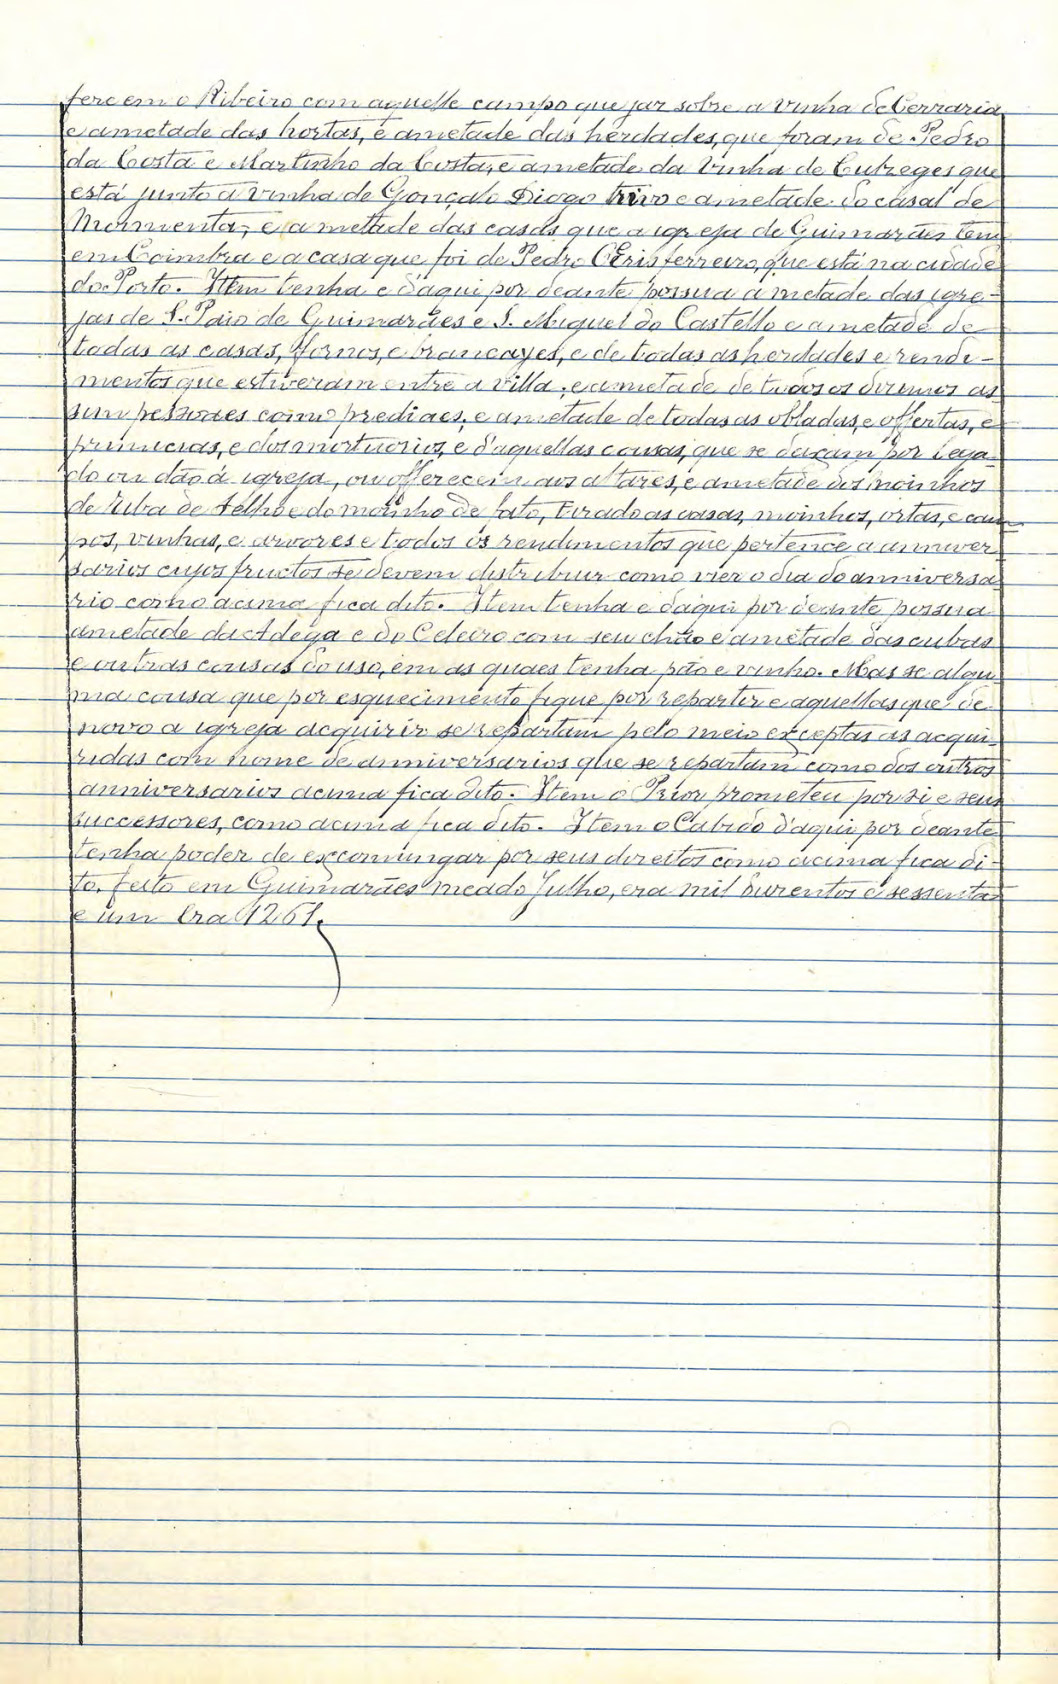 fere em o Ribeiro com aquelle campo que jaz sobre a vinha de Cerraria
e ametade das hortas, e ametade das herdades, que foram de Pedro
da Costa e Martinho da Costa, e ametade da Vinha de Cutreges que
está junto a vinha de Gonçalo Diogo trivo e ametade do casal de
Mormenta, e a mettade das casas que a igreja de Guimarães tem
em Coimbra e a casa que foi de Pedro ferreiro, que está na cidade
do Porto. Item tenha e d'aqui por deante possua a metade das igre-
jas de S. Paio de Guimarães e S. Miguel do Castello e ametade de
todas as casas, fornos, e e de todas as herdades e rendi-
mentos que estiveram entre a villa, e ametade de todos os dizimos as
sim pessoaes como prediaes, e ametade de todas as obladas, e offertas, e
primicias, e dos mortuorios, e d'aquellas cousas, que se deixam por lega
do ou dão á igreja, ou offerecem aos altares, e ametade dos moinhos
de Riba de Selho e do moinho de fato, tirado as casas, moinhos, ortas, e cam
pos, vinhas, e arvores e todos os rendimentos que pertence a anniver
sarios cujos fructos se devem distribuir como vier o dia do anniversa
rio como acima fica dito. Item tenha e daqui por deante possua
ametade da Adega e do Celeiro com seu chão e ametade das cubas
e outras cousas do uso, em as quaes tenha pão e vinho. Mas se algu
ma cousa que por esquecimento fique por repartir e aquellas que de
novo a igreja acquirir se repartam pelo meio exceptas as acqui-
ridas com nome de anniversarios que se repartam como dos outros
anniversarios acima fica dito. Item o Prior prometeu por si e seus
successores, como acima fica dito. Item o Cabido d'aqui por deante
tenha poder de excomungar por seus direitos como acima fica di-
to. feito em Guimarães meado Julho, era mil durentos e sessenta
e um Era 1261.